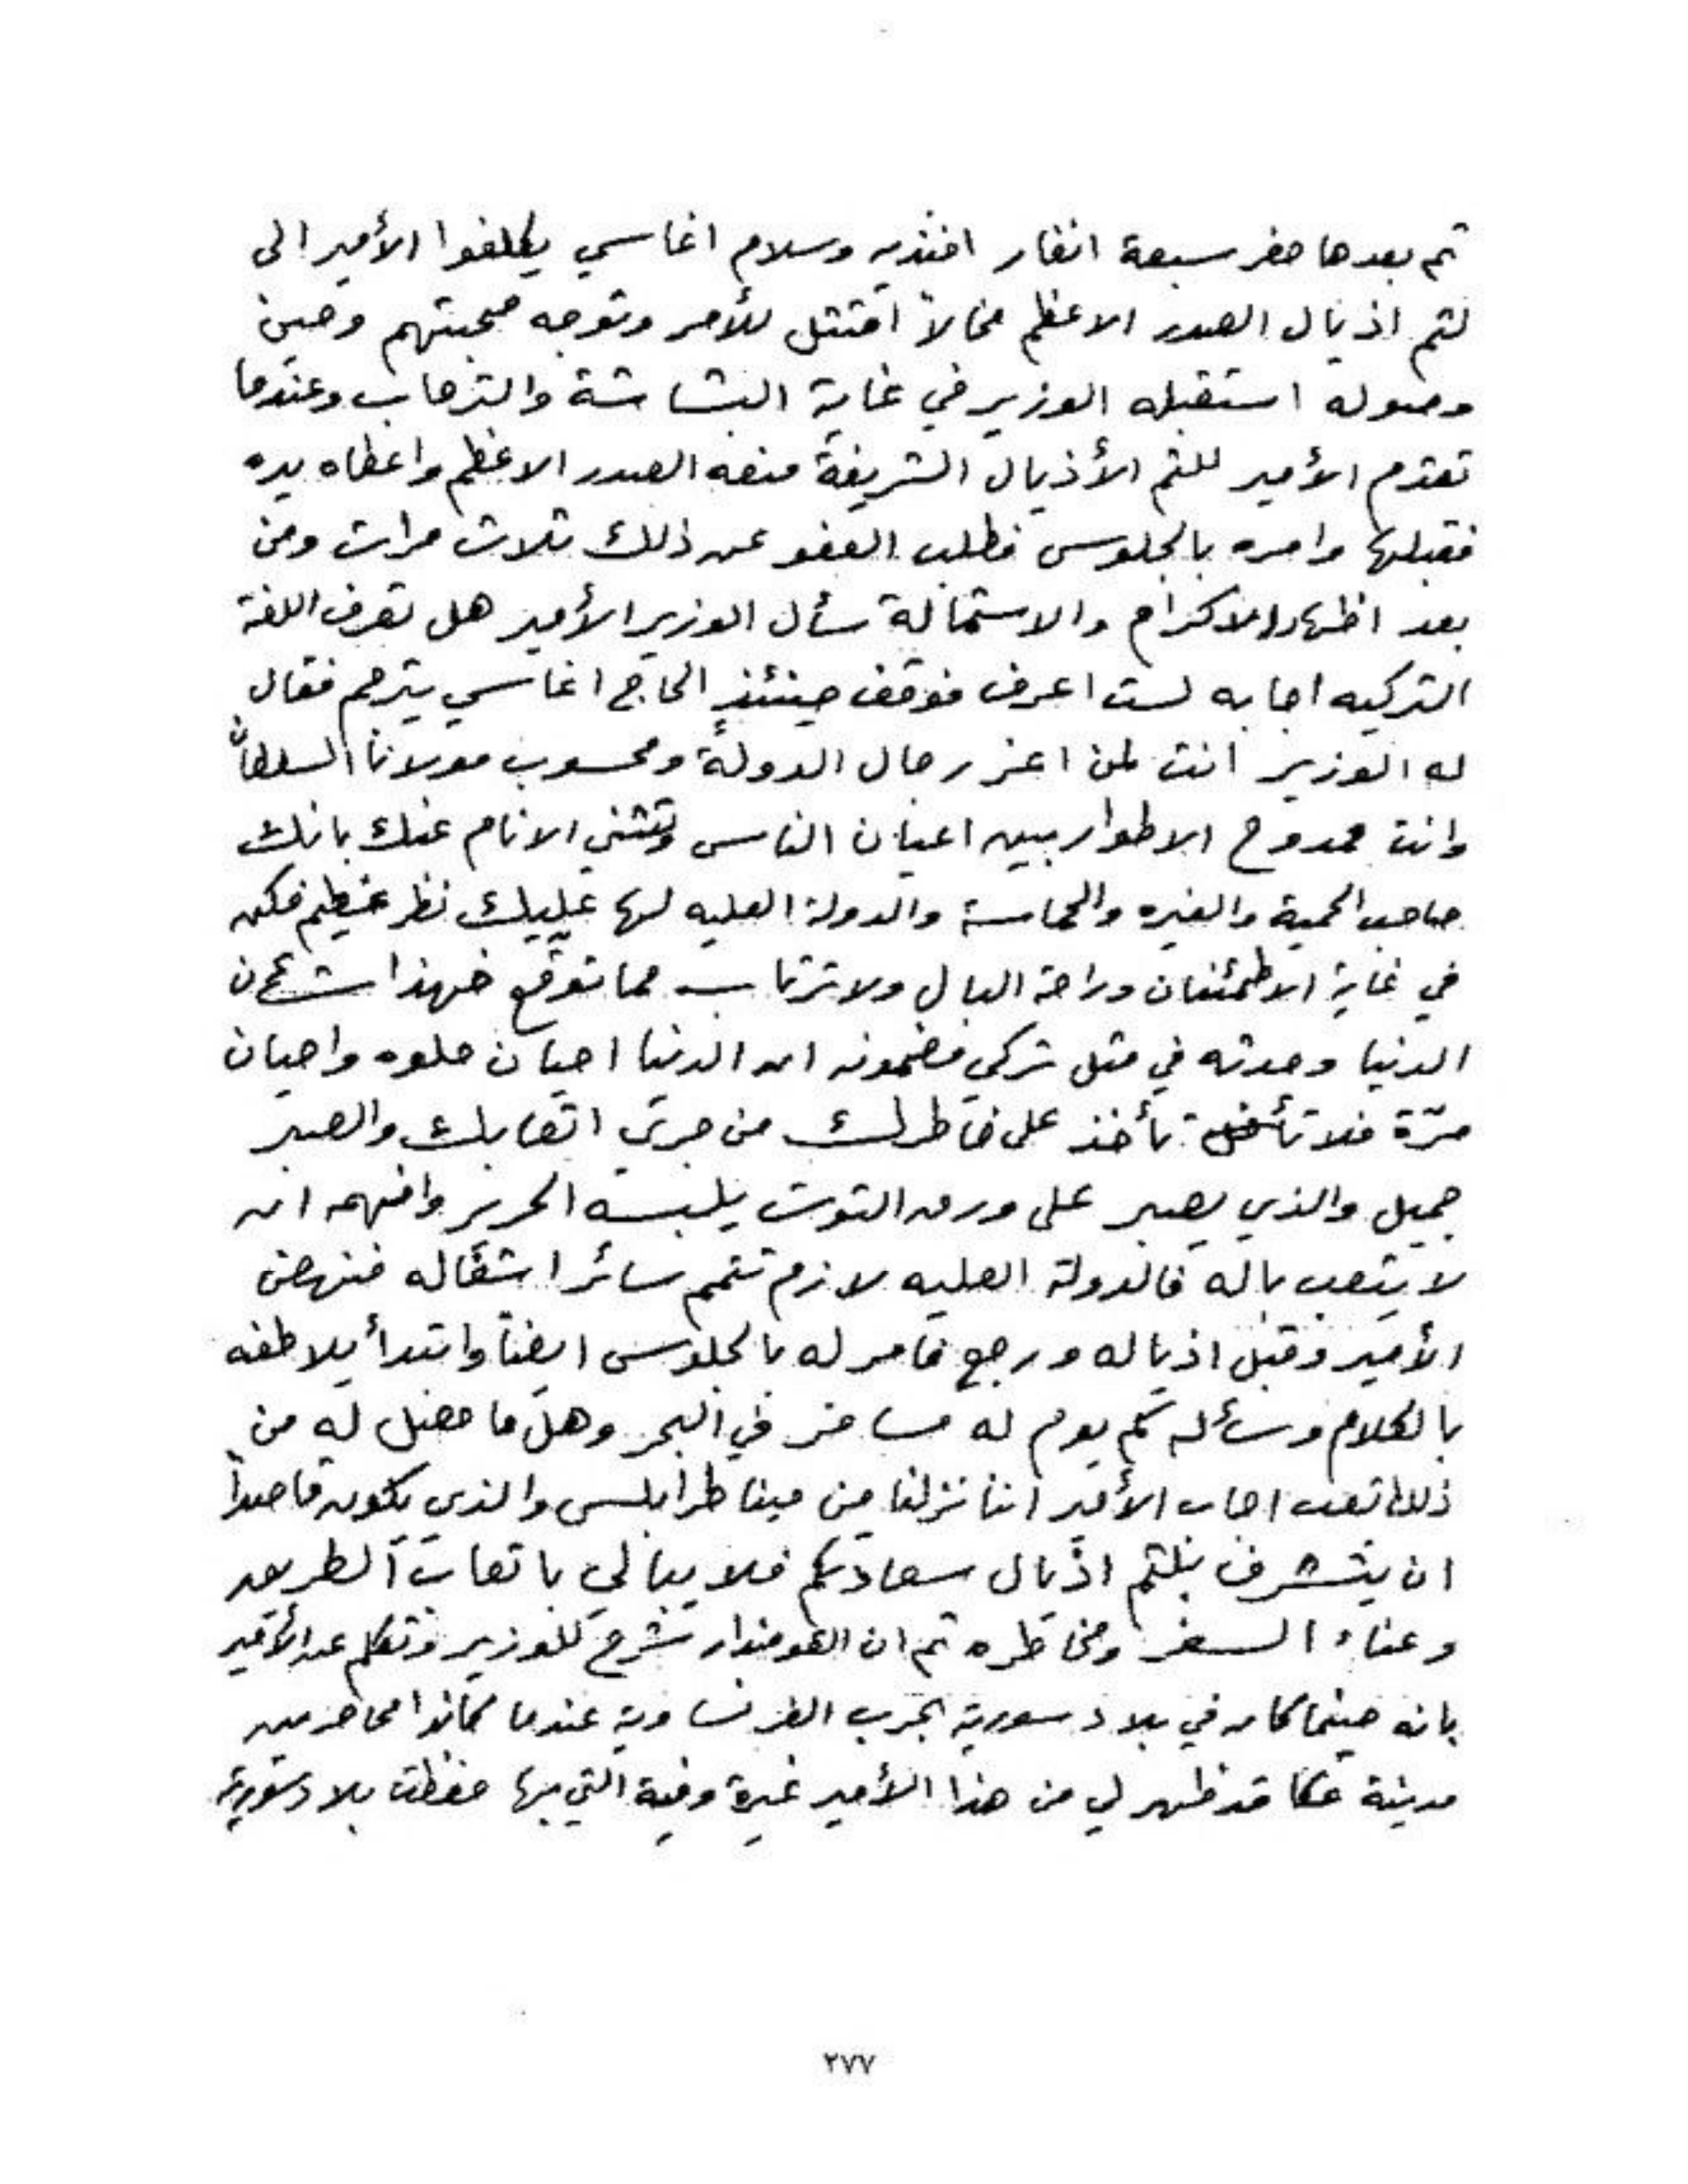 ثم بعدها حضر سبعة انفار افنديه وسلام اغاسي يكلفوا الأمير الى
لثم اذيال الصدر الاعظم فحالاً امتثل للأمر وتوجه صحبتهم وحين
وصوله استقبله الوزير في غاية البشاشة والترحاب وعندما
تقدم الأمير للثم الأذيال الشريفة منعه الصدر الاعظم واعطاه يده
فقبلها وامره بالجلوس فطلب العفو عن ذلك ثلاث مرات ومن
بعد اظهار الاكرام والاستمالة سأل الوزير الأمير هل تعرف اللغة
التركيه اجابه لست اعرف فوقف حينئذٍ الحاج اغاسي يترجم فقال
له الوزير انت لمن اعز رجال الدولة ومحسوب مولانا السلطان
وانت ممدوح الاطوار بين اعيان الناس وتثني الانام عنك بانك
صاحب الحمية والغيره والحماسة والدولة العليه لها عليك نظر عظيم فكن
في غاية الاطمئنان وراحة البال ولا ترتاب مما توقع فهذا شأن
الدنيا وحدثه في مثل تركي مضمونه ان الدنيا احيان حلوه واحيان
مرّة فلا تأخذ على خاطرك من جرى اتعابك والصبر
جميل والذي يصبر على ورق التوت يلبسه الحرير وافهمه ان
لا يتعب باله فالدولة العليه لازم تتمم سائر اشغاله فنهض
الأمير وقبل اذياله ورجع فامر له بالجلوس ايضاً وابتدأ يلاطفه
بالكلام وسأله كم يوم له مسافر في البحر وهل ما حصل له من
ذلك تعب اجاب الأمير اننا نزلنا من مينا طرابلس والذي يكون قاصداً
ان يتشرف بلثم اذيال سعادتكم فلا يبالي باتعاب الطريق
وعناء السفر ومخاطره ثم ان القومندار شرح للوزير وتكلم عن الأمير
بانه حينما كان في بلاد سورية بحرب الفرنساوية عندما كانوا محاصرين
مدينة عكا قد ظهر لي من هذا الأمير غيرة وفية التي بها حفظت بلاد سورية
٢٧٧